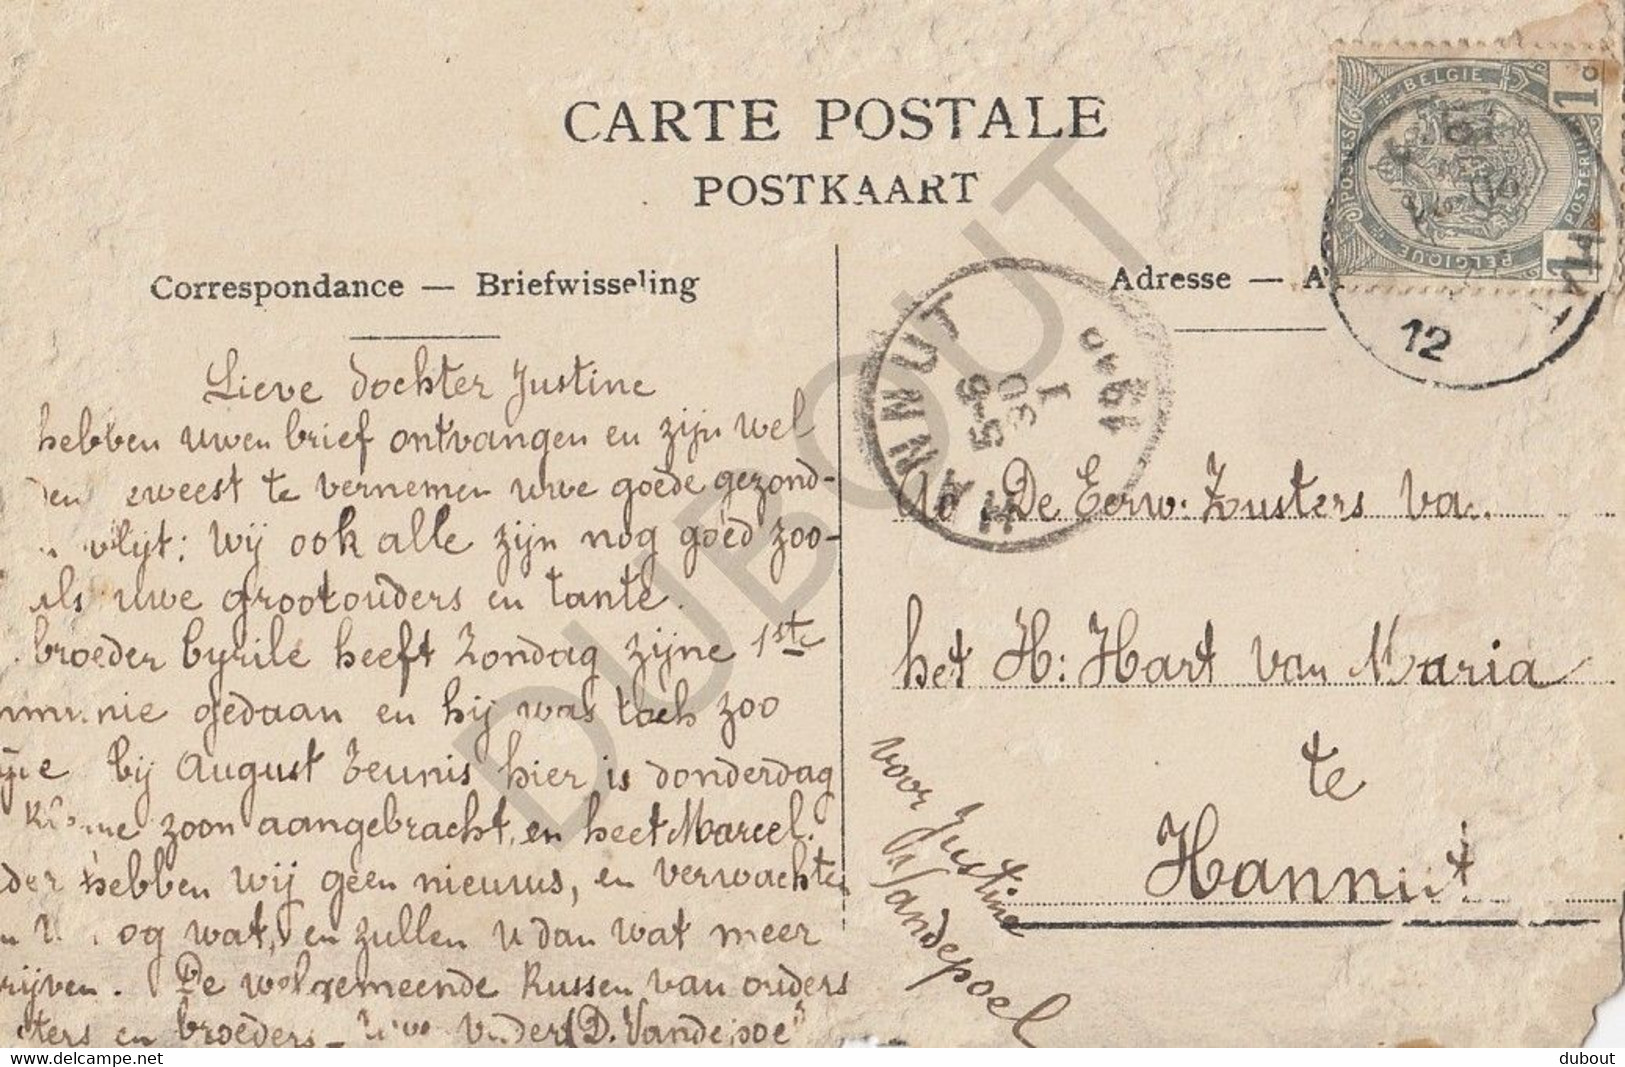 CARTE POSTALE
POSTKAART
Correspondance — Briefwisseling
Adresse —
BELGIE
POSTES
POSTERIJEN
BELGIQUE
1
1
12
HANNUT
5-6
30
1
1910
Lieve dochter Justine
hebben uwen brief ontvangen en zijn wel
te vernemen uwe goede gezond-
vlijt: wij ook alle zijn nog goed zoo-
als uwe grootouders en tante.
broeder Cyrile heeft Zondag zijne 1ste
gedaan en hij was toch zoo
bij August Zeunis hier is donderdag
zoon aangebracht, en heet Marcel.
hebben wij geen nieuws, en verwachten
og wat, en zullen u dan wat meer
rijven. De welgemeende Kussen van ouders
en broeders - Uwe vader (D. Vandepoel
De Eerw. Zusters va
het H: Hart van Maria
te
Hannut
voor Justine
Vandepoel
DUBOUT
© delcampe.net
dubout